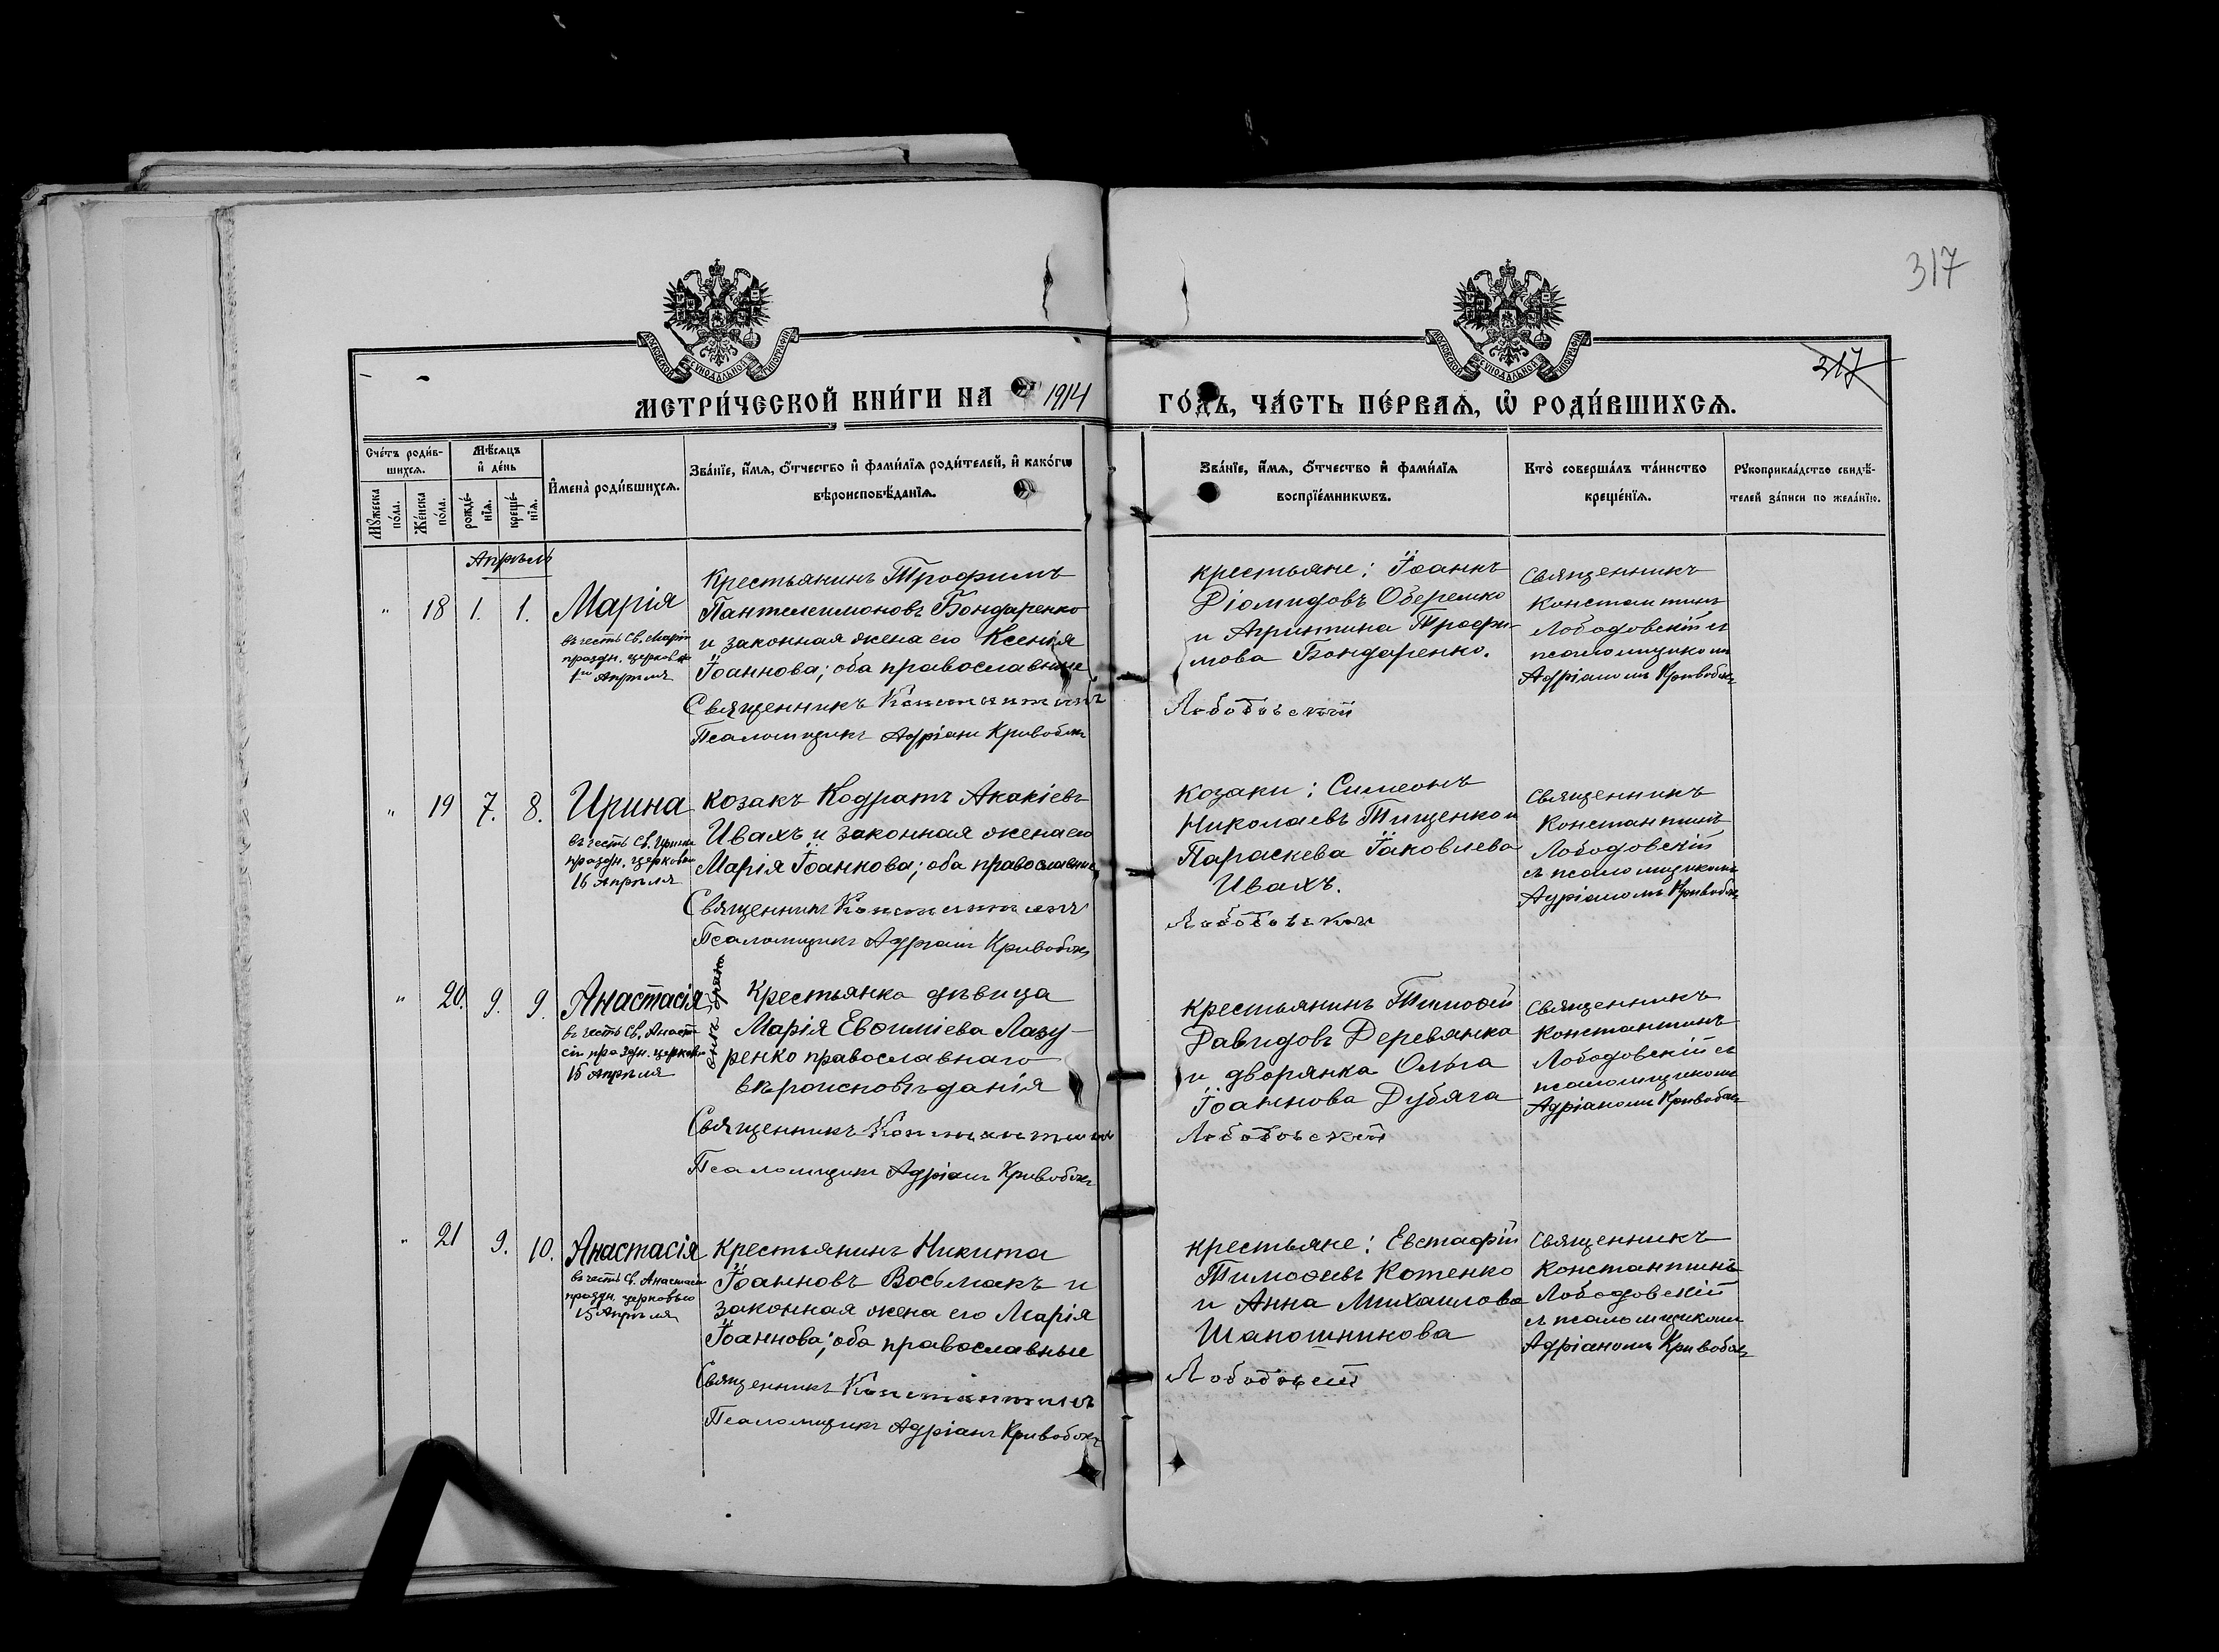 317
317
МОСКОВСКОЙ СѴНОДАЛЬНОЙ ТИПОГРАФІИ
МОСКОВСКОЙ СѴНОДАЛЬНОЙ ТИПОГРАФІИ
МЕТРИ́ЧЕСКОЙ КНИ́ГИ НА 1914 ГО́ДЪ, ЧА́СТЬ ПЕ́РВАѦ, Ѡ҆ РОДИ́ВШИХСѦ.
Сче́тъ роди́в-
шихсѧ.
Мꙋ́жеска по́ла.
Же́нска по́ла.
Мѣ́сѧцъ
и҆ де́нь
рожде́-
нїѧ.
креще́-
нїѧ.
И҆мена̀ роди́вшихсѧ.
Зва́нїе, и҆́мѧ, ѻ҆́тчество и҆ фами́лїѧ роди́телей, и҆ како́гѡ
вѣроисповѣ́данїѧ.
Зва́нїе, и҆́мѧ, ѻ҆́тчество и҆ фами́лїѧ
воспрїе́мникѡвъ.
Кто̀ соверша́лъ та́инство
креще́нїѧ.
Рꙋкоприкла́дство свидѣ́-
телей за́писи по жела́нїю.
Апрѣль
" 18 1. 1.
Марія
въ честь Св. Маріи
праздн. церков
1го Апрѣля
Крестьянинъ Трофимъ
Пантелеимоновъ Бондаренко
и законная жена его Ксенія
Іоаннова; оба православные
Священникъ Константинъ
Псаломщикъ Адріанъ Кривобокъ
крестьяне: Іоаннъ
Діомидовъ Оберемко
и Агрипина Трофи-
мова Бондаренко.
Лободовскій
Священникъ
Константинъ
Лободовскій съ
псаломщикомъ
Адріаномъ Кривобок
" 19 7. 8.
Ирина
въ честь Св. Ирины
праздн. церковью
16 Апрѣля
Козакъ Кодратъ Акакіевъ
Ивахъ и законная жена его
Марія Іоаннова; оба православные
Священникъ Константинъ
Псаломщикъ Адріанъ Кривобокъ
Козаки: Симеонъ
Николаевъ Тищенко и
Параскева Іаковлева
Ивахъ.
Лободовскій
Священникъ
Константинъ
Лободовскій
съ псаломщикомъ
Адріаномъ Кривобок
" 20. 9. 9.
Анастасія
въ честь Св. Анаст
сіи праздн. церковью
15 Апрѣля
Крестьянка дѣвица
Марія Евѳиміева Лазу-
ренко православнаго
вѣроисповѣданія
Священникъ Константинъ
Псаломщикъ Адріанъ Кривобокъ
Крестьянинъ Тимоѳей
Давидовъ Деревянка
и дворянка Ольга
Іоаннова Дубяга
Лободовскій
Священникъ
Константинъ
Лободовскій съ
псаломщикомъ
Адріаномъ Кривобок
" 21 9. 10.
Анастасія
въ честь Св. Анастасіи
праздн. церковью
15 Апрѣля
Крестьянинъ Никита
Іоанновъ Восьмакъ и
законная жена его Марія
Іоаннова; оба православные
Священникъ Константинъ
Псаломщикъ Адріанъ Кривобокъ
крестьяне: Евстафій
Тимоѳеевъ Котенко
и Анна Михаилова
Шапошникова
Лободовскій
Священникъ
Константинъ
Лободовскій
съ псаломщикомъ
Адріаномъ Кривобок